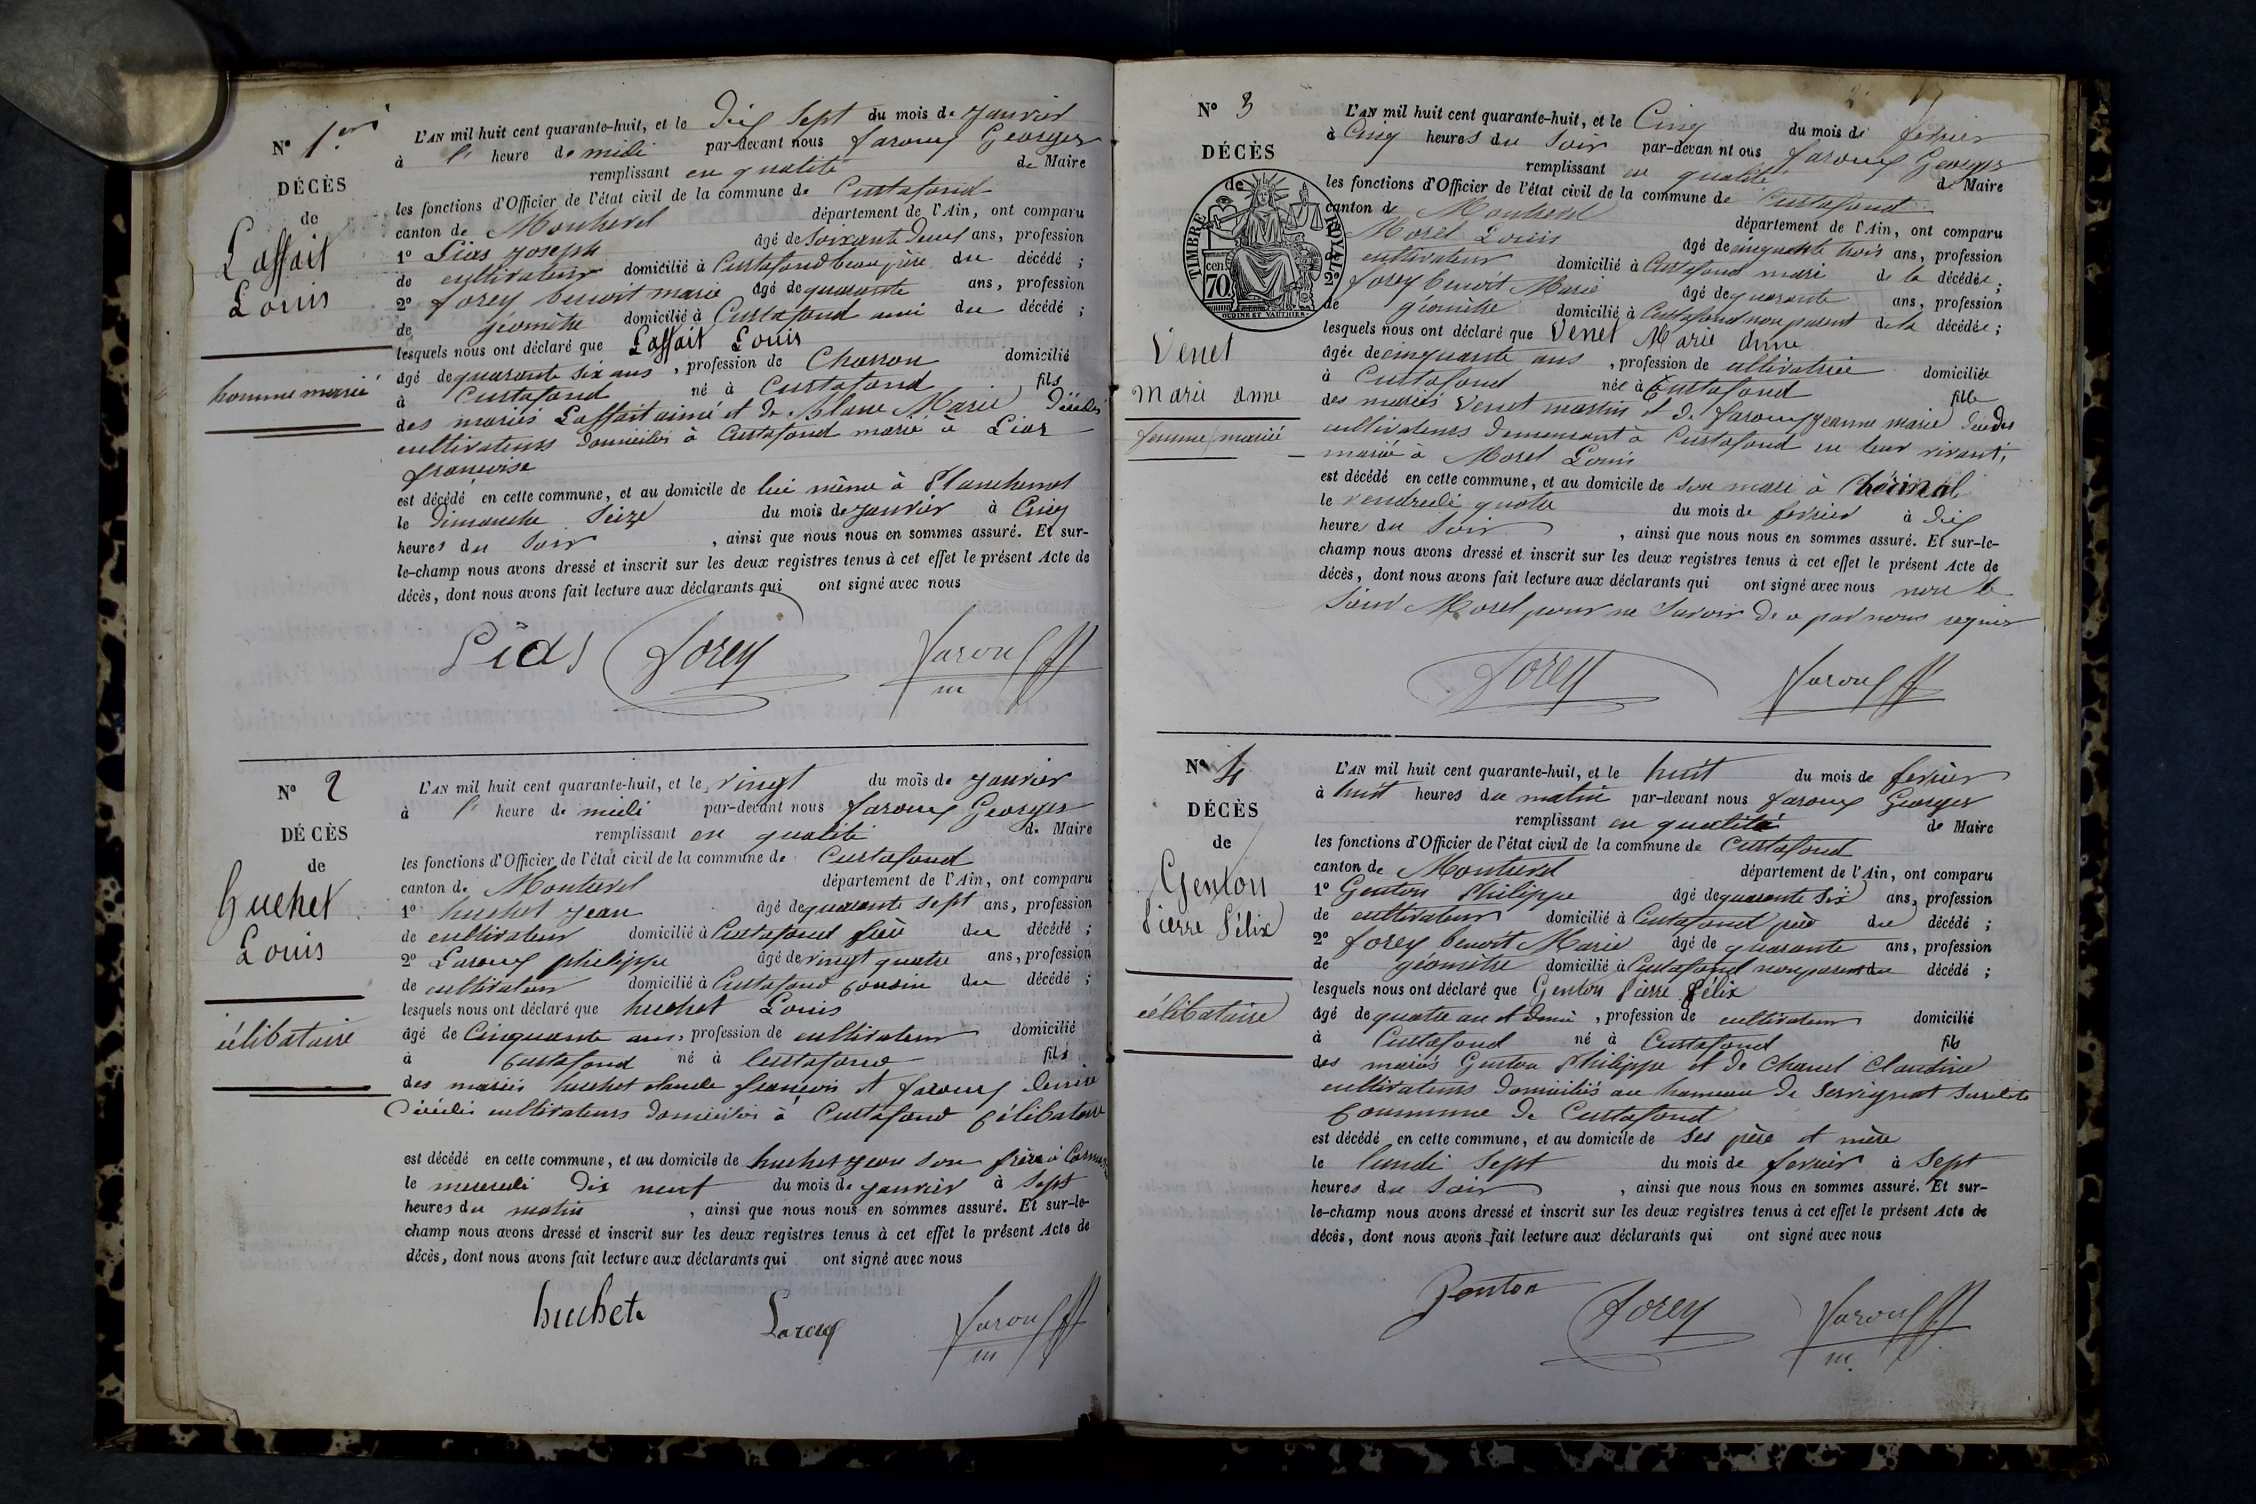 N° 1er
DÉCÈS
de
Laffait
Louis
homme marié
L'AN mil huit cent quarante-huit, et le Dix Sept du mois de Janvier
à l' heure de midi par-devant nous faroux Georges
remplissant en qualité de Maire
les fonctions d'Officier de l'état civil de la commune de Curtafond
canton de Montrevel département de l'Ain, ont comparu
1° Lias Joseph âgé de Soixante Deux ans, profession
de cultivateur domicilié à Curtafond beau père du décédé ;
2° forey benoit marie âgé de quarante ans, profession
de géomètre domicilié à Curtafond ami du décédé ;
lesquels nous ont déclaré que Laffait Louis
âgé de quarante six ans , profession de Charron domicilié
à Curtafond né à Curtafond fils
des mariés Laffait aimé et de Blanc Marie Décédés
cultivateurs domiciliés à Curtafond marié à Lias
françoise
est décédé en cette commune, et au domicile de lui même à
le Dimanche Seize du mois de Janvier à Cinq
heures du Soir , ainsi que nous nous en sommes assuré. Et sur-
le-champ nous avons dressé et inscrit sur les deux registres tenus à cet effet le présent Acte de
décès, dont nous avons fait lecture aux déclarants qui ont signé avec nous
Lias forey faroux
m
N° 2
DÉCÈS
de
huchet
Louis
célibataire
L'AN mil huit cent quarante-huit, et le vingt du mois de Janvier
à l' heure de midi par-devant nous faroux Georges
remplissant en qualité de Maire
les fonctions d'Officier de l'état civil de la commune de Curtafond
canton de Montrevel département de l'Ain, ont comparu
1° huchet Jean âgé de quarante sept ans, profession
de cultivateur domicilié à Curtafond frère du décédé ;
2° Laroux philippe âgé de vingt quatre ans, profession
de cultivateur domicilié à Curtafond cousin du décédé ;
lesquels nous ont déclaré que huchet Louis
âgé de Cinquante ans, profession de cultivateur domicilié
à Curtafond né à Curtafond fils
des mariés huchet claude françois et faroux Denise
Décédés cultivateurs domiciliés à Curtafond Célibataire
est décédé en cette commune, et au domicile de huchet Jean son frère à
le mercredi Dix neuf du mois de Janvier à Sept
heures du matin , ainsi que nous nous en sommes assuré. Et sur-le-
champ nous avons dressé et inscrit sur les deux registres tenus à cet effet le présent Acte de
décès, dont nous avons fait lecture aux déclarants qui ont signé avec nous
huchet Laroux faroux
m
N° 3
DÉCÈS
de
TIMBRE ROYAL
70 cen
Venet
Marie Anne
femme mariée
L'AN mil huit cent quarante-huit, et le Cinq du mois de fevrier
à Cinq heures du Soir par-devan nt ous faroux Georges
remplissant en qualité de Maire
les fonctions d'Officier de l'état civil de la commune de Curtafond
canton de Montrevel département de l'Ain, ont comparu
Morel Louis âgé de cinquante trois ans, profession
cultivateur domicilié à Curtafond mari de la décédée ;
2° forey benoit Marie âgé de quarante ans, profession
de géomètre domicilié à Curtafond non parent de la décédée ;
lesquels nous ont déclaré que Venet Marie Anne
âgée de cinquante ans , profession de cultivatrice domiciliée
à Curtafond née à Curtafond fille
des mariés Venet martin et de faroux Jeanne marie Décédés
cultivateurs demeurant à Curtafond en leur vivant,
mariée à Morel Louis
est décédé en cette commune, et au domicile de son mari à
le vendredi quatre du mois de fevrier à Dix
heure du Soir , ainsi que nous nous en sommes assuré. Et sur-le-
champ nous avons dressé et inscrit sur les deux registres tenus à cet effet le présent Acte de
décès, dont nous avons fait lecture aux déclarants qui ont signé avec nous non le
Sieur Morel pour ne savoir de ce par nous requis
forey faroux
N° 4
DÉCÈS
de
Genton
Pierre Félix
célibataire
L'AN mil huit cent quarante-huit, et le huit du mois de fevrier
à huit heures du matin par-devant nous faroux Georges
remplissant en qualité de Maire
les fonctions d'Officier de l'état civil de la commune de Curtafond
canton de Montrevel département de l'Ain, ont comparu
1° Genton Philippe âgé de quarante Six ans, profession
de cultivateur domicilié à Curtafond père du décédé ;
2° forey benoit Marie âgé de quarante ans, profession
de géomètre domicilié à Curtafond non parent du décédé ;
lesquels nous ont déclaré que Genton Pierre Félix
âgé de quatre an et demi , profession de cultivateur domicilié
à Curtafond né à Curtafond fils
des mariés Genton Philippe et de Chanel Claudine
cultivateurs Domiciliés au hameau de Serrignat Susdite
Commune de Curtafond
est décédé en cette commune, et au domicile de ses père et mère
le lundi Sept du mois de fevrier à Sept
heures du Soir , ainsi que nous nous en sommes assuré. Et sur-
le-champ nous avons dressé et inscrit sur les deux registres tenus à cet effet le présent Acte de
décès, dont nous avons fait lecture aux déclarants qui ont signé avec nous
Genton forey faroux
m